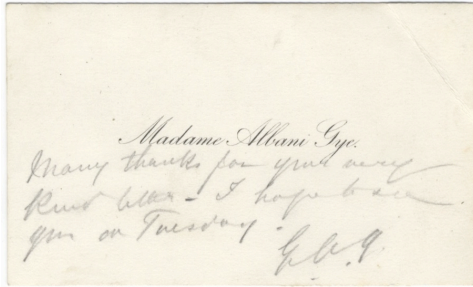 Madame Albani Gye.
Many thanks for your very
kind letter – I hope to see
you on Tuesday.